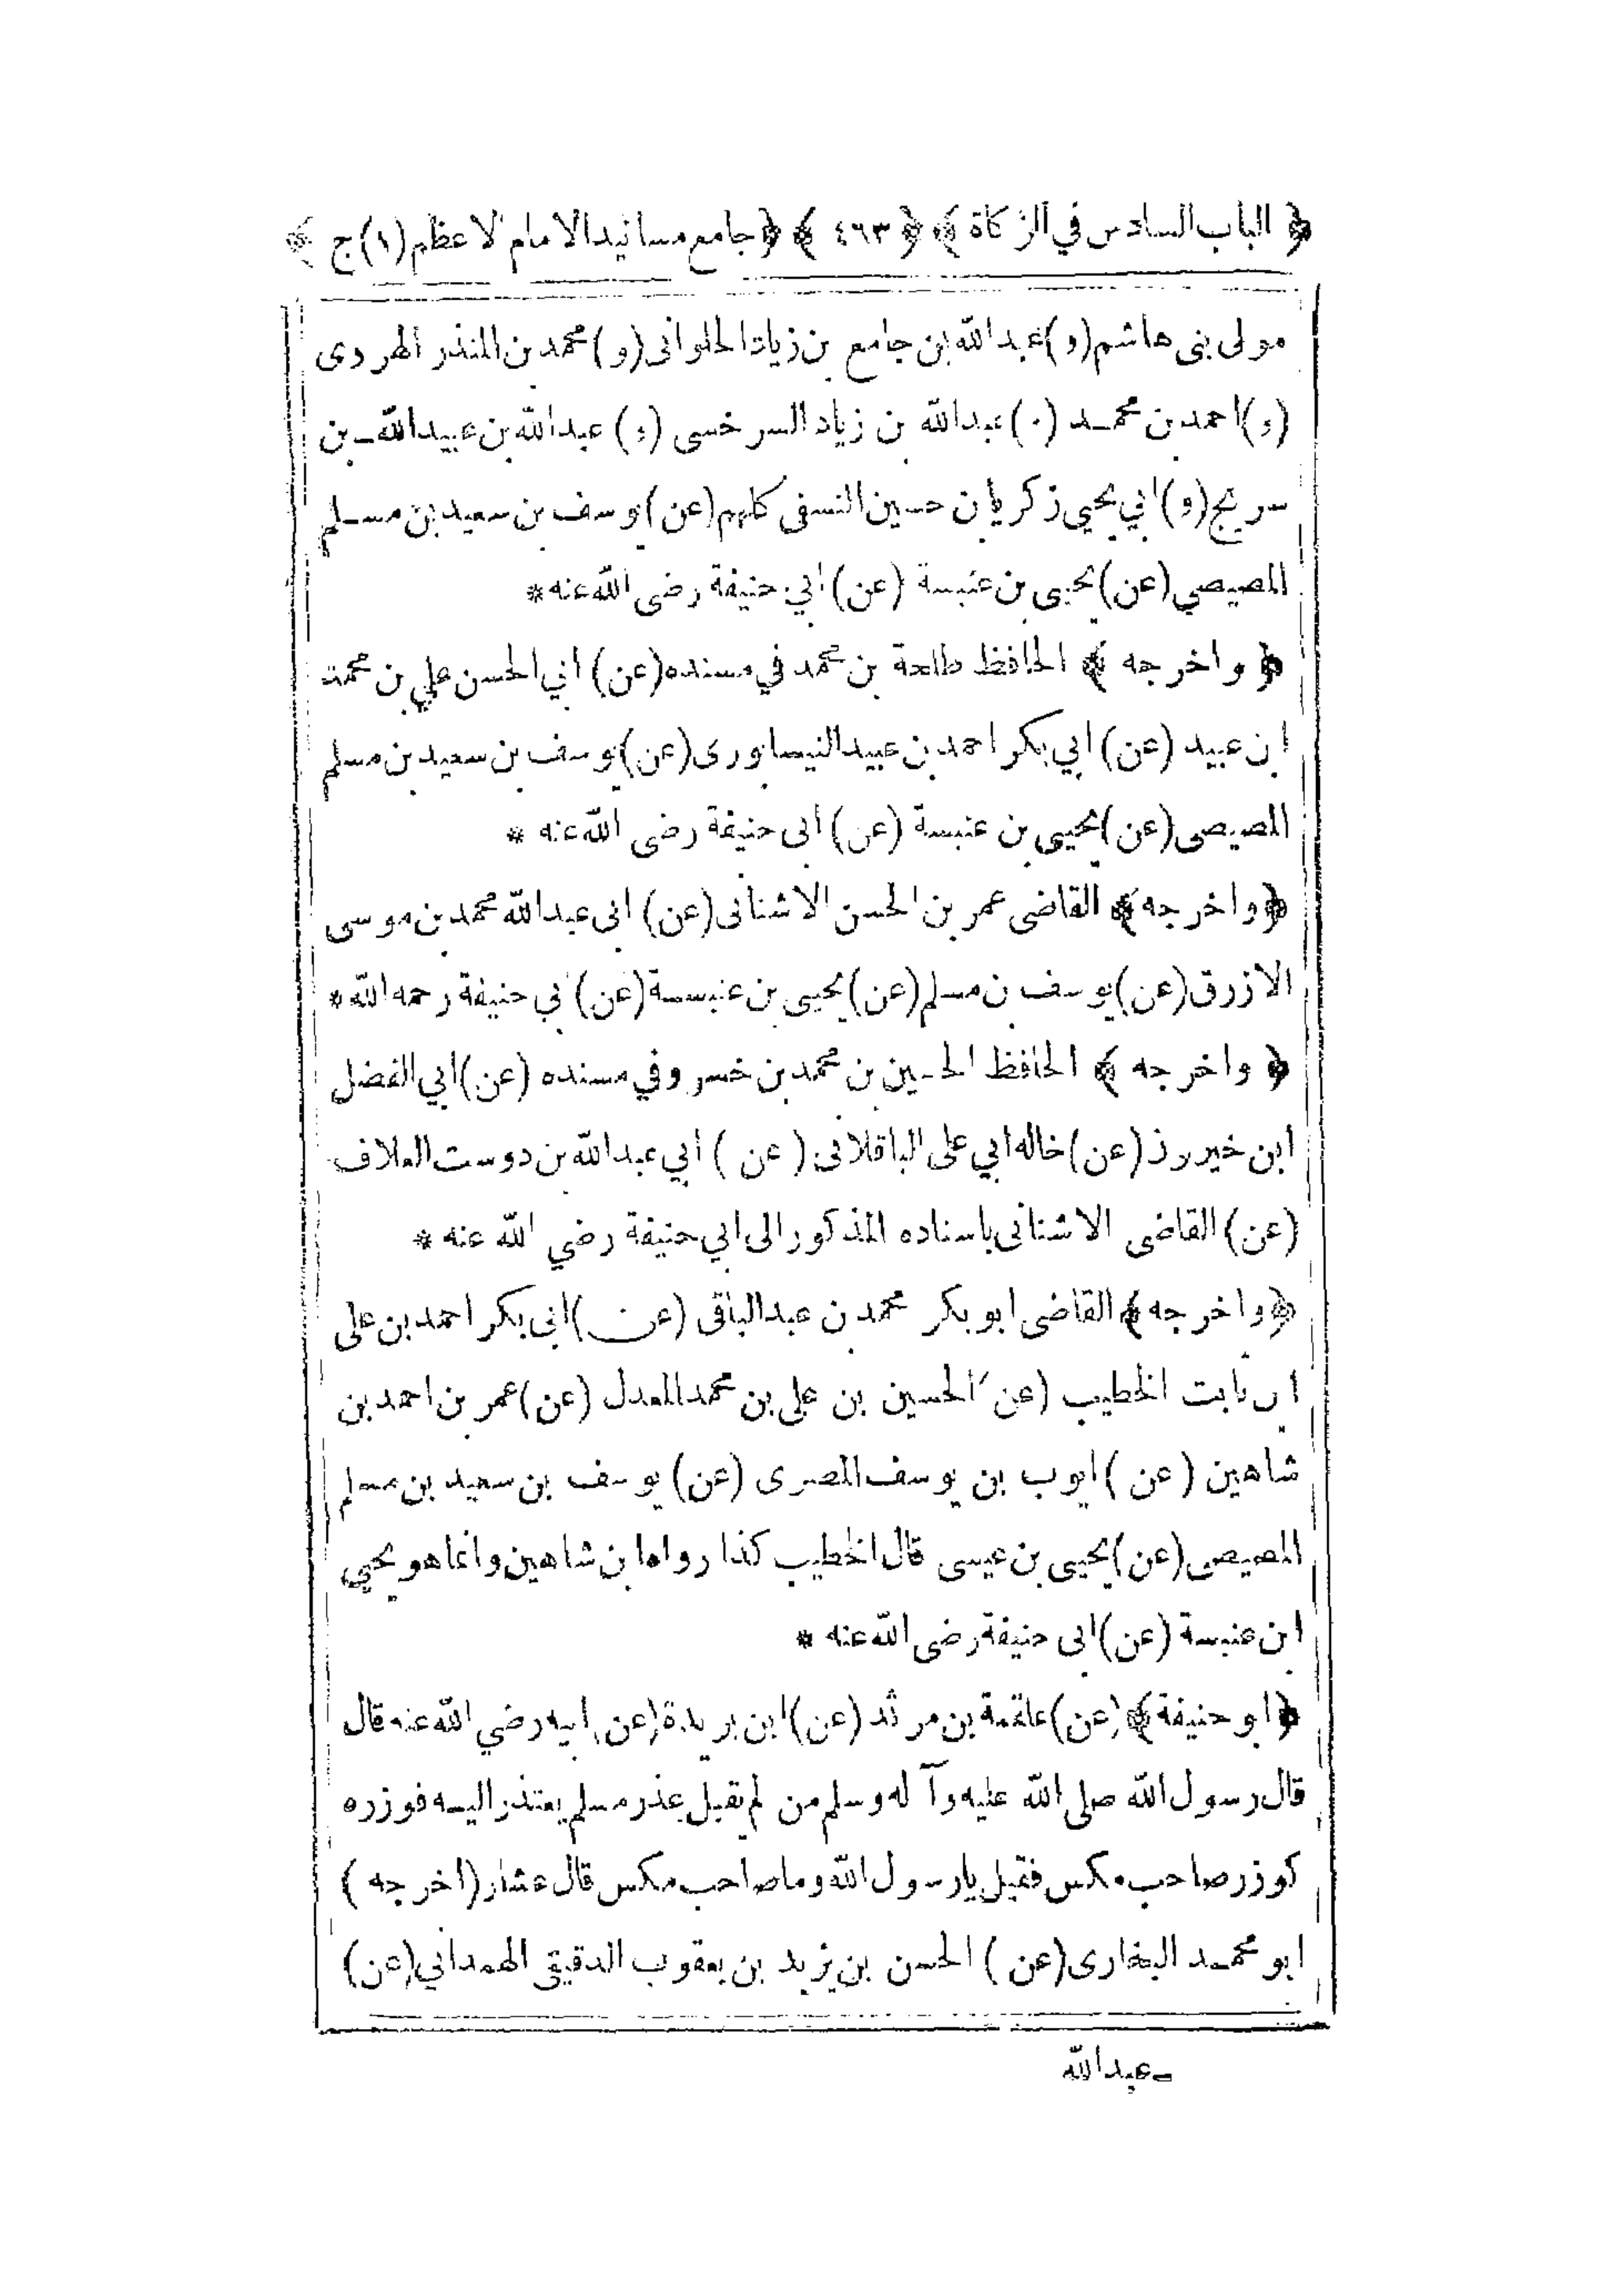 ﴿ الباب السادس في الزكاة ﴾ ﴿ ٤٦٣ ﴾ ﴿ جامع مسانيد الامام الاعظم (١) ج ﴾
مولى بنى هاشم (و) عبدالله بن جامع بن زياد الحلوانى (و) محمد بن المنذر الهروى
(و) احمد بن محمد (و) عبدالله بن زياد السرخسى (و) عبدالله بن عبيدالله بن
سريج (و) ابي يحيى زكريا بن حسين النسفى كلهم (عن) يوسف بن سعيد بن مسلم
المصيصي (عن) يحيى بن عنبسة (عن) ابي حنيفة رضى الله عنه *
﴿ واخرجه ﴾ الحافظ طلحة بن محمد في مسنده (عن) ابي الحسن علي بن محمد
ابن عبيد (عن) ابي بكر احمد بن عبيد النيسابورى (عن) يوسف بن سعيد بن مسلم
المصيصى (عن) يحيى بن عنبسة (عن) ابى حنيفة رضى الله عنه *
﴿ واخرجه ﴾ القاضى عمر بن الحسن الاشنانى (عن) ابى عبدالله محمد بن موسى
الازرق (عن) يوسف بن مسلم (عن) يحيى بن عنبسة (عن) ابي حنيفة رحمه الله *
﴿ واخرجه ﴾ الحافظ الحسين بن محمد بن خسرو في مسنده (عن) ابي الفضل
ابن خيرون (عن) خاله ابي على الباقلانى (عن) ابي عبدالله بن دوست العلاف
(عن) القاضى الاشنانى باسناده المذكور الى ابي حنيفة رضي الله عنه *
﴿ واخرجه ﴾ القاضى ابو بكر محمد بن عبدالباقى (عن) ابى بكر احمد بن على
ابن ثابت الخطيب (عن) الحسين بن على بن محمد المعدل (عن) عمر بن احمد بن
شاهين (عن) ايوب بن يوسف المصرى (عن) يوسف بن سعيد بن مسلم
المصيصى (عن) يحيى بن عيسى قال الخطيب كذا رواه ابن شاهين وانما هو يحيي
ابن عنبسة (عن) ابى حنيفة رضى الله عنه *
﴿ ابو حنيفة ﴾ (عن) علقمة بن مرثد (عن) ابن بريدة (عن) ابيه رضي الله عنه قال
قال رسول الله صلى الله عليه وآله وسلم من لم يقبل عذر مسلم يعتذر اليه فوزره
كوزر صاحب مكس فقيل يا رسول الله وما صاحب مكس قال عشار (اخرجه)
ابو محمد البخارى (عن) الحسن بن يزيد بن يعقوب الدقيقى الهمداني (عن)
عبدالله